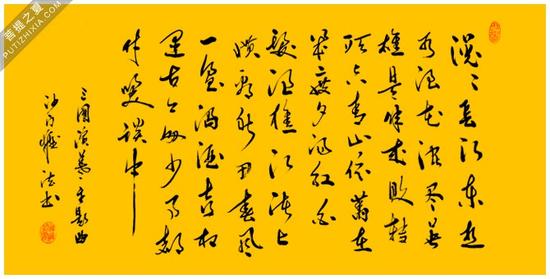 滚〻长江东逝
水浪花淘尽英
雄是非成败转
头空青山依旧在
几度夕阳红白
发渔樵江渚上
惯看秋月春风
一壶浊酒喜相
逢古今多少事都
付笑谈中
三国演义主题曲
法书
菩提之夏
PUTIZHIXIA.COM